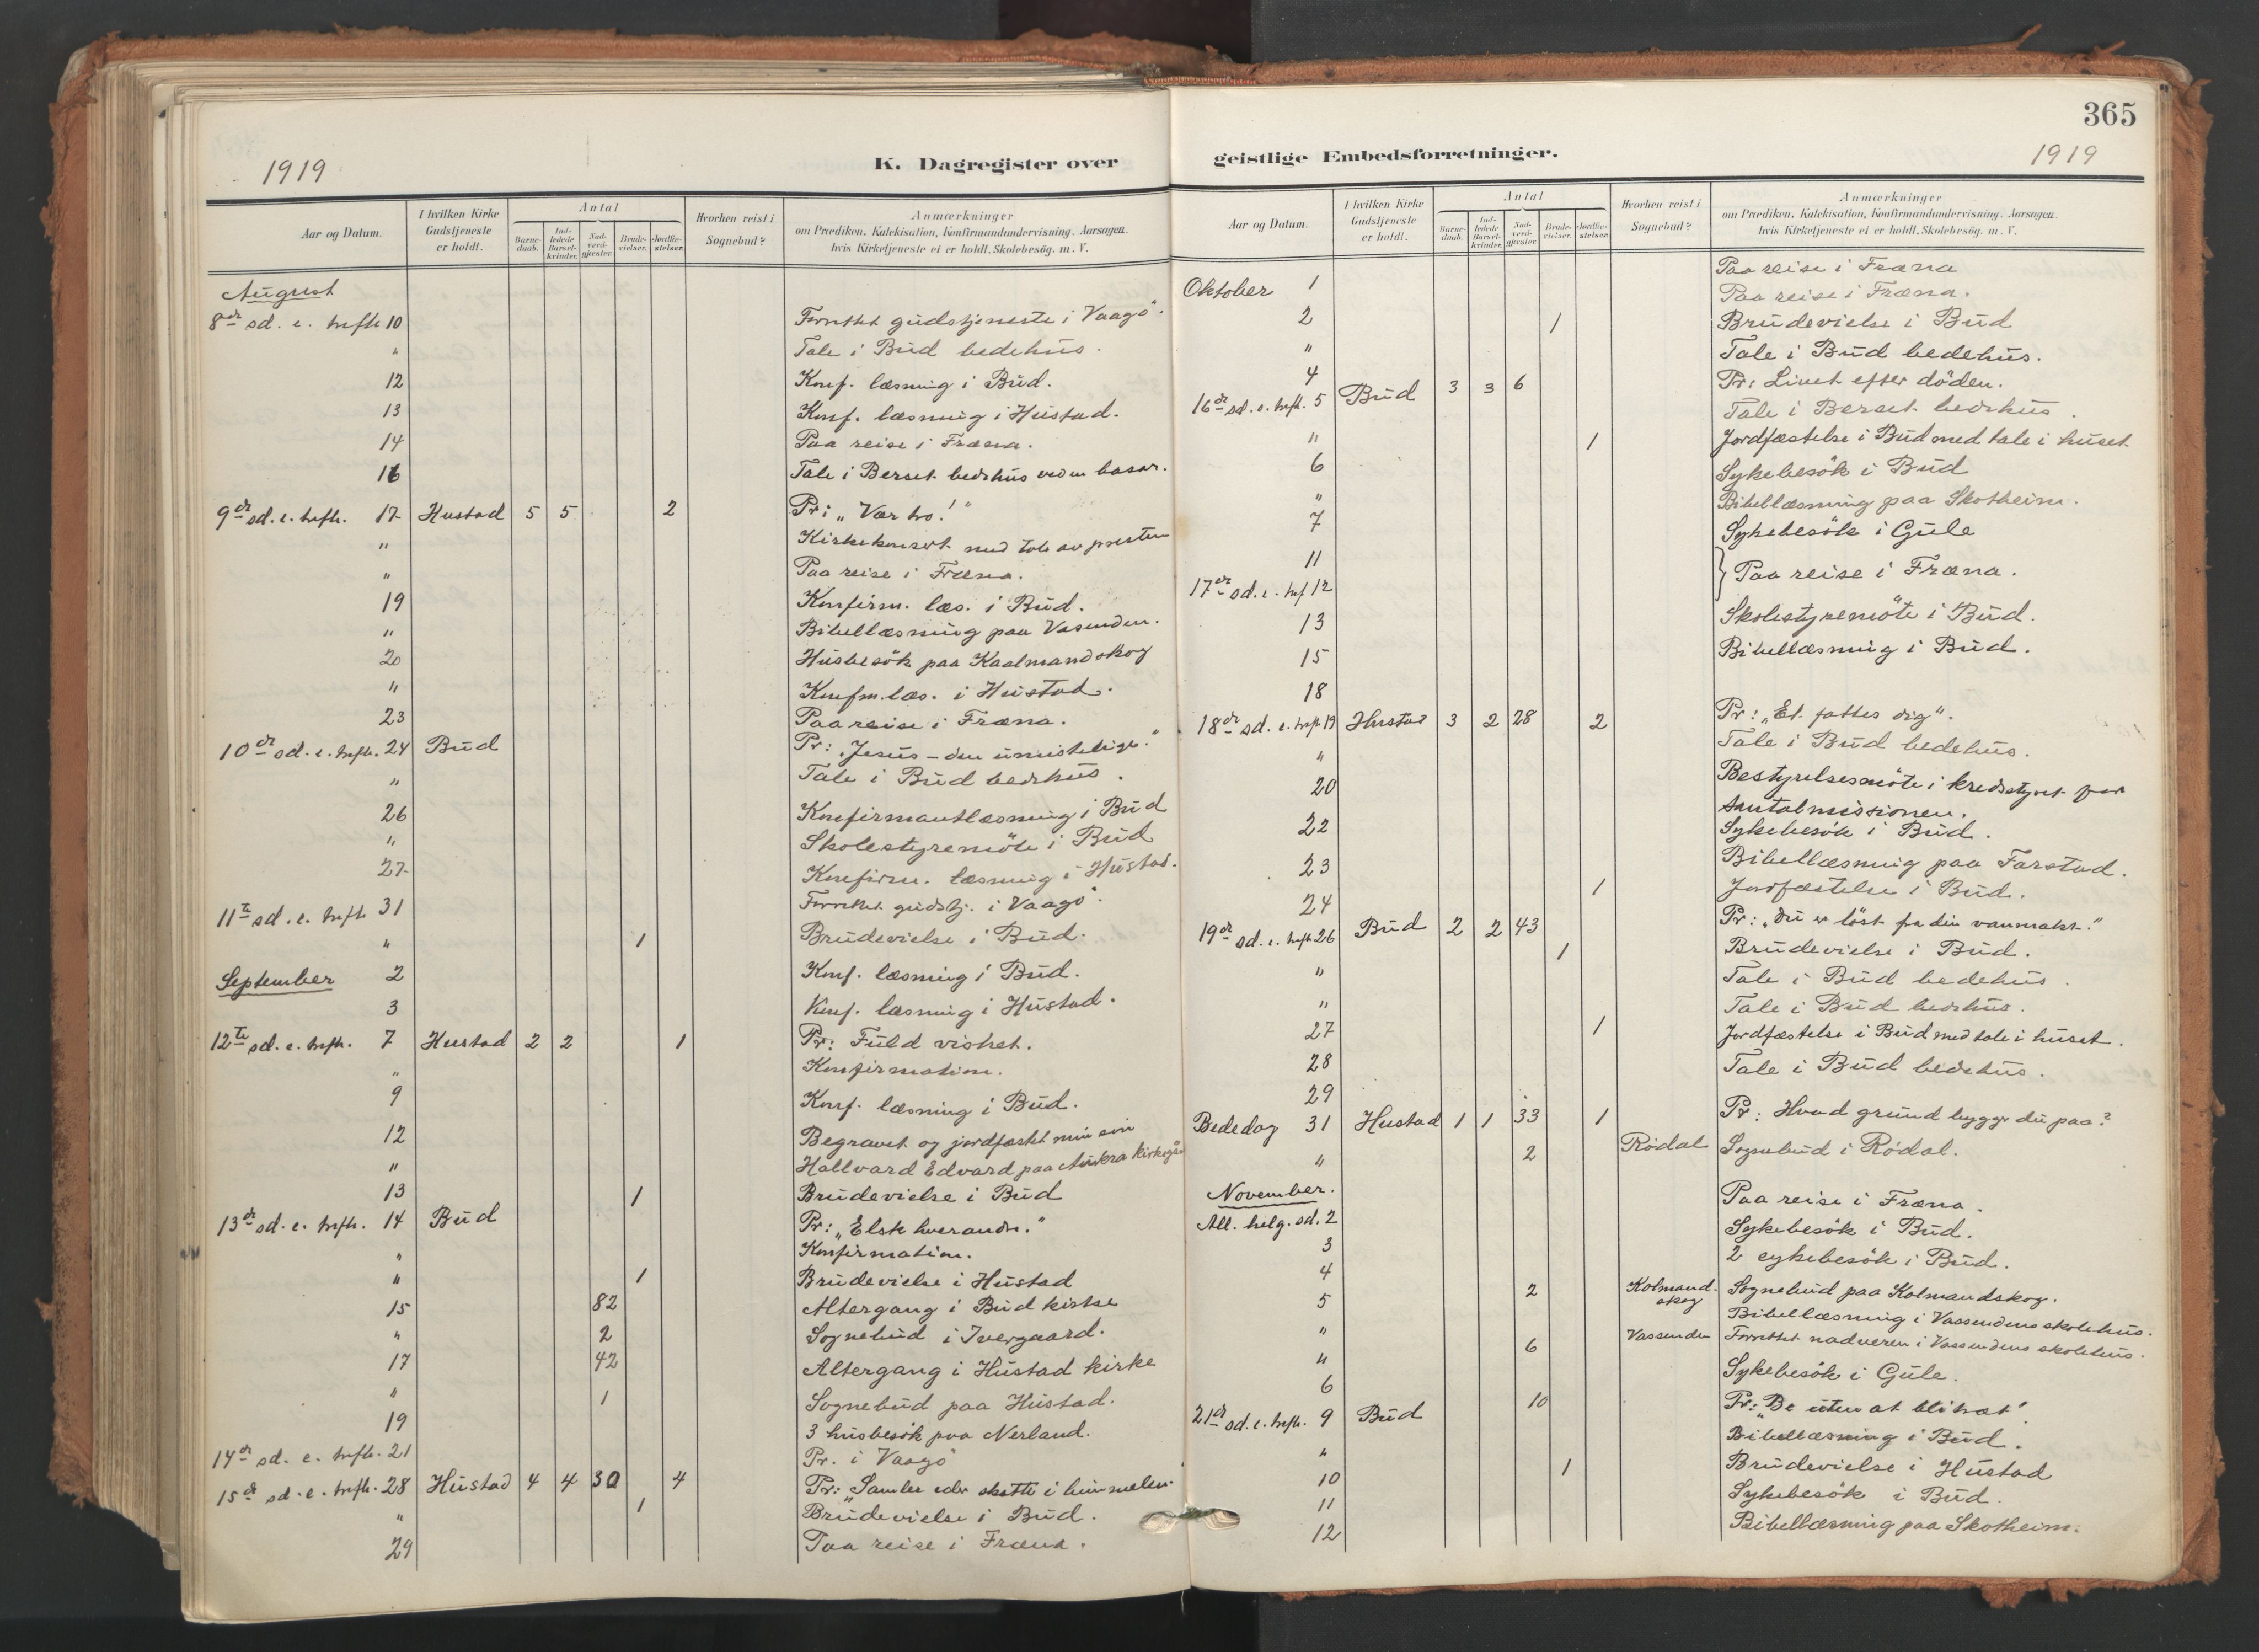 365
1919
K. Dagregister over
geistlige Embedsforretninger.
1919
Aar og Datum. I hvilken Kirke Gudstjeneste er holdt. Antal Barnedaab. Indledede Barselkvinder. Nadverdgjæster. Brudevielser. Jordfæstelser. Hvorhen reist i Sognebud? Anmærkninger om Prædiken, Katekisation, Konfirmandundervisning, Aarsagen, hvis Kirketjeneste ei er holdt, Skolebesøg. m. V.
August
8de sd. e. trefh. 10 Forrettet gudstjeneste i Vaagö.
" Tale i Bud bedehus.
12 Konf. læsning i Bud.
13 Konf. læsning i Hustad.
14 Paa reise i Fræna.
16 Tale i Berset bedehus ved en basar.
9de sd. e. trefh. 17 Hustad 5 5 2 Pr: "Vær tro!"
" Kirkekonsert med tale av presten
" Paa reise i Fræna.
19 Konfirm. læs. i Bud.
" Bibellæsning paa Vasenden.
20 Husbesök paa Kaalmandskog
" Konfm. læs. i Hustad.
23 Paa reise i Fræna.
10de sd. e. trefh. 24 Bud Pr: "Jesus - den umistelige."
" Tale i Bud bedehus.
26 Konfirmantlæsning i Bud
" Skolestyremöte i Bud
27 Konfirm. læsning i Hustad.
11te sd. e. trefh. 31 Forrettet gudstj. i Vaagö.
" 1 Brudevielse i Bud.
September 2 Konf. læsning i Bud.
3 Konf. læsning i Hustad.
12te sd. e. trefh. 7 Hustad 2 2 1 Pr: Fuld vished.
" Konfirmation.
9 Konf. læsning i Bud.
12 Begravet og jordfæstet min svin
" Hallvard Edvard paa Aukra kirkegård
13 1 Brudevielse i Bud
13de sd. e. trefh. 14 Bud Pr: "Elsk hverandre."
" Konfirmation.
" 1 Brudevielse i Hustad
15 82 Altergang i Bud kirke
" 2 Sognebud i Ivergaard.
17 42 Altergang i Hustad kirke
" 1 Sognebud paa Hustad.
19 3 husbesök paa Nerland.
14de sd. e. trefh. 21 Pr. i Vaagö
15de sd. e. trefh. 28 Hustad 4 4 30 4 Pr: "Samler eder skatte i himmelen."
" 1 Brudevielse i Bud.
29 Paa reise i Fræna.
Aar og Datum. I hvilken Kirke Gudstjeneste er holdt. Antal Barnedaab. Indledede Barselkvinder. Nadverdgjæster. Brudevielser. Jordfæstelser. Hvorhen reist i Sognebud? Anmærkninger om Prædiken, Katekisation, Konfirmandundervisning, Aarsagen, hvis Kirketjeneste ei er holdt, Skolebesøg. m. V.
Paa reise i Fræna
Oktober 1 Paa reise i Fræna.
2 1 Brudevielse i Bud
" Tale i Bud bedehus.
4
16de sd. e. trefh. 5 Bud 3 3 6 Pr: Livet efter döden.
Tale i Berset bedehus.
" 1 Jordfæstelse i Bud med tale i huset
6 Sykebesök i Bud
" Bibellæsning paa Skotheim.
7 Sykebesök i Gule
11
17de sd. e. tref 12 } Paa reise i Fræna.
13 Skolestyremöte i Bud.
15 Bibellæsning i Bud.
18
18de sd. e. trefh. 19 Hustad 3 2 28 2 Pr: "Et fattes dig".
" Tale i Bud bedehus.
20 Bestyrelsesmöte i kredsstyret for
Santalmissionen.
22 Sykebesök i Bud.
23 Bibellæsning paa Farstad.
24 1 Jordfæstelse i Bud.
19de sd. e. trefh. 26 Bud 2 2 43 Pr: "Du er löst fra din vanmakt."
1 Brudevielse i Bud.
" Tale i Bud bedehus.
" Tale i Bud bedehus.
27 1 Jordfæstelse i Bud med tale i huset.
28 Tale i Bud bedehus.
29
Bededag 31 Hustad 1 1 33 1 Pr: Hvad grund bygger du paa?
" 2 Rödal Sognebud i Rödal.
November. Paa reise i Fræna.
All. helg. sd. 2 Sykebesök i Bud.
3 2 sykebesök i Bud.
4
5 2 Kolmandskog Sognebud paa Kolmandskog.
Bibellæsning i Vassendens skolehus.
" 6 Vassenden Forrettet nadveren i Vassendens skolehus.
" Sykebesök i Gule.
6
21de sd. e. trefh. 9 Bud 10 Pr: "Be uten at bli træt".
" Bibellæsning i Bud.
10 1 Brudevielse i Hustad
11 Sykebesök i Bud.
12 Bibellæsning paa Skotheim.